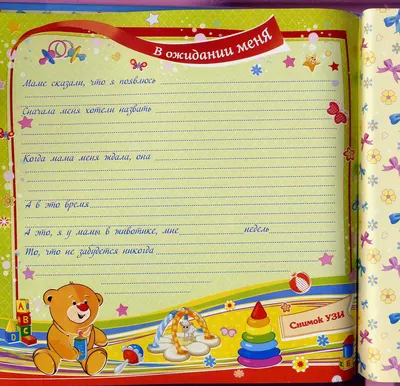 В ожидании меня
Маме сказали, что я появлюсь
Сначала меня хотели назвать
Когда мама меня ждала, она
А в это время
А это, я у мамы в животике, мне недель
То, что не забудется никогда
Снимок УЗИ